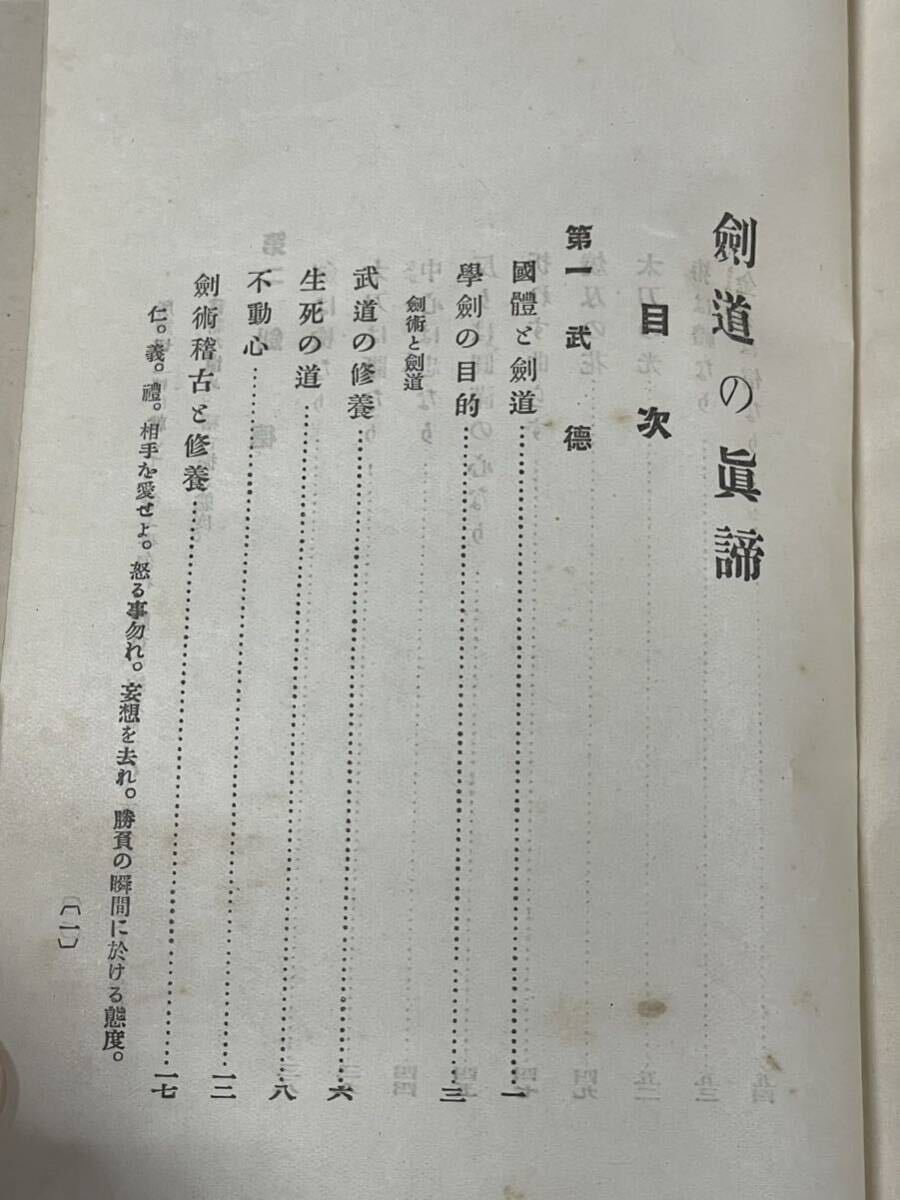 劍道の眞諦
目次
第一 武德
國體と劍道……一
學劍の目的……三
劍術と劍道
武道の修養……六
生死の道……八
不動心……一二
劍術稽古と修養……一七
仁。義。禮。相手を愛せよ。怒る事勿れ。妄想を去れ。勝負の瞬間に於ける態度。
〔一〕